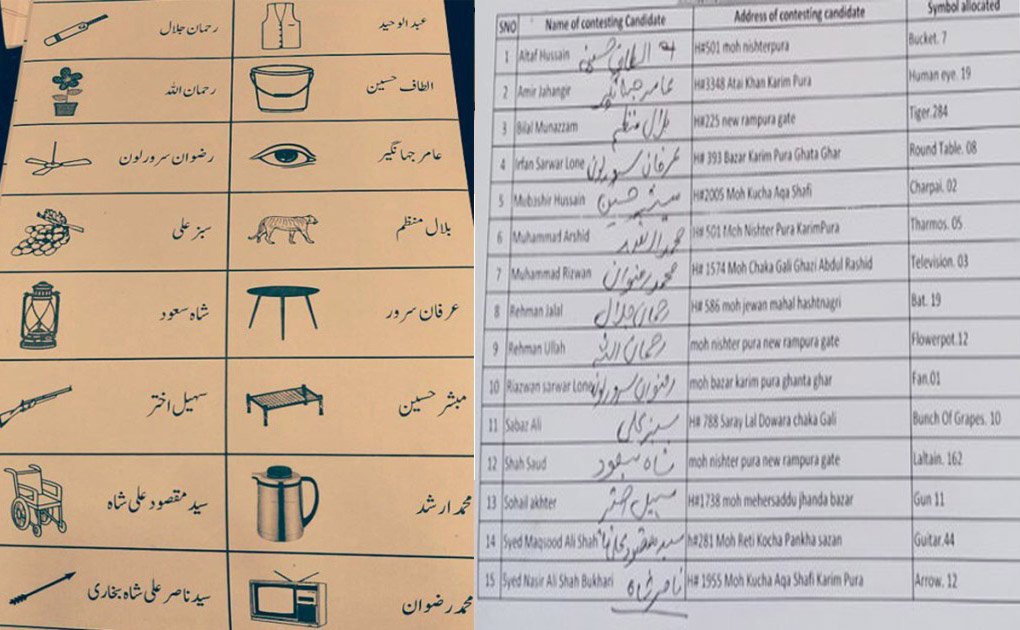 رحمان جلال
عبدالوحید
رحمان اللہ
الطاف حسین
رضوان سرور لون
عامر جہانگیر
سبز علی
بلال منظم
شاہ سعود
عرفان سرور
سہیل اختر
مبشر حسین
سید مقصود علی شاہ
محمد ارشد
سید ناصر علی شاہ بخاری
محمد رضوان
SNO Name of contesting Candidate Address of contesting candidate Symbol allocated
1 Altaf Hussain الطاف حسین H#501 moh nishterpura Bucket. 7
2 Amir Jahangir عامر جہانگیر H#3348 Atai Khan Karim Pura Human eye. 19
3 Bilal Munazzam بلال منظم H#225 new rampura gate Tiger.284
4 Irfan Sarwar Lone عرفان سرور لون H# 393 Bazar Karim Pura Ghata Ghar Round Table. 08
5 Mubashir Hussain مبشر حسین H#2005 Moh Kucha Aqa Shafi Charpai. 02
6 Muhammad Arshid محمد ارشد H# 501 Moh Nishter Pura KarimPura Tharmos. 05
7 Muhammad Rizwan محمد رضوان H# 1574 Moh Chaka Gali Ghazi Abdul Rashid Television. 03
8 Rehman Jalal رحمان جلال H# 586 moh jewan mahal hashtnagri Bat. 19
9 Rehman Ullah رحمان اللہ moh nishter pura new rampura gate Flowerpot.12
10 Riazwan sarwar Lone رضوان سرور لون moh bazar karim pura ghanta ghar Fan.01
11 Sabaz Ali سبز علی H# 788 Saray Lal Dowara chaka Gali Bunch Of Grapes. 10
12 Shah Saud شاہ سعود moh nishter pura new rampura gate Laltain. 162
13 Sohail akhter سہیل اختر H#1738 moh mehersaddu jhanda bazar Gun 11
14 Syed Maqsood Ali Shah سید مقصود علی شاہ h#281 Moh Reti Kocha Pankha sazan Guitar.44
15 Syed Nasir Ali Shah Bukhari ناصر شاہ H# 1955 Moh Kucha Aqa Shafi Karim Pura Arrow. 12